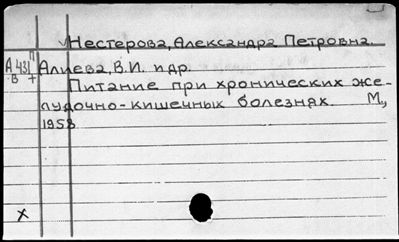 √Нестерова, Александра Петровна
А 431 П
В 7
Алиева, В.И. и др.
Питание при хронических же-
лудочно-кишечных болезнях. М.,
1958
X